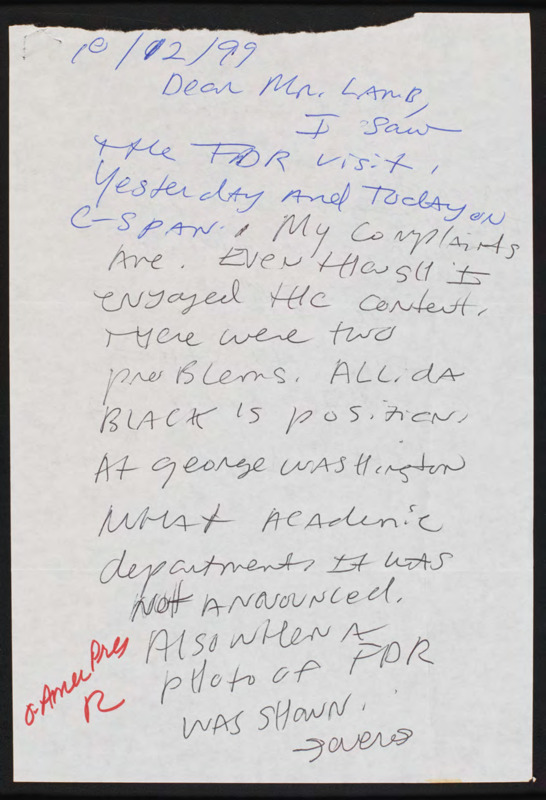 10/12/99
Dear Mr. LAMB,
I saw
the FDR visit,
Yesterday And Today on
C-SPAN. My Complaints
Are. Even though I
enjoyed the content,
there were two
problems. ALLidA
BLACK'S position,
At george WASHington
WHAt Academic
department, It was
Not ANNOUNCED.
Also when A
pHoto of FDR
WAS SHOWN.
→over→
o-Amer Pres
R